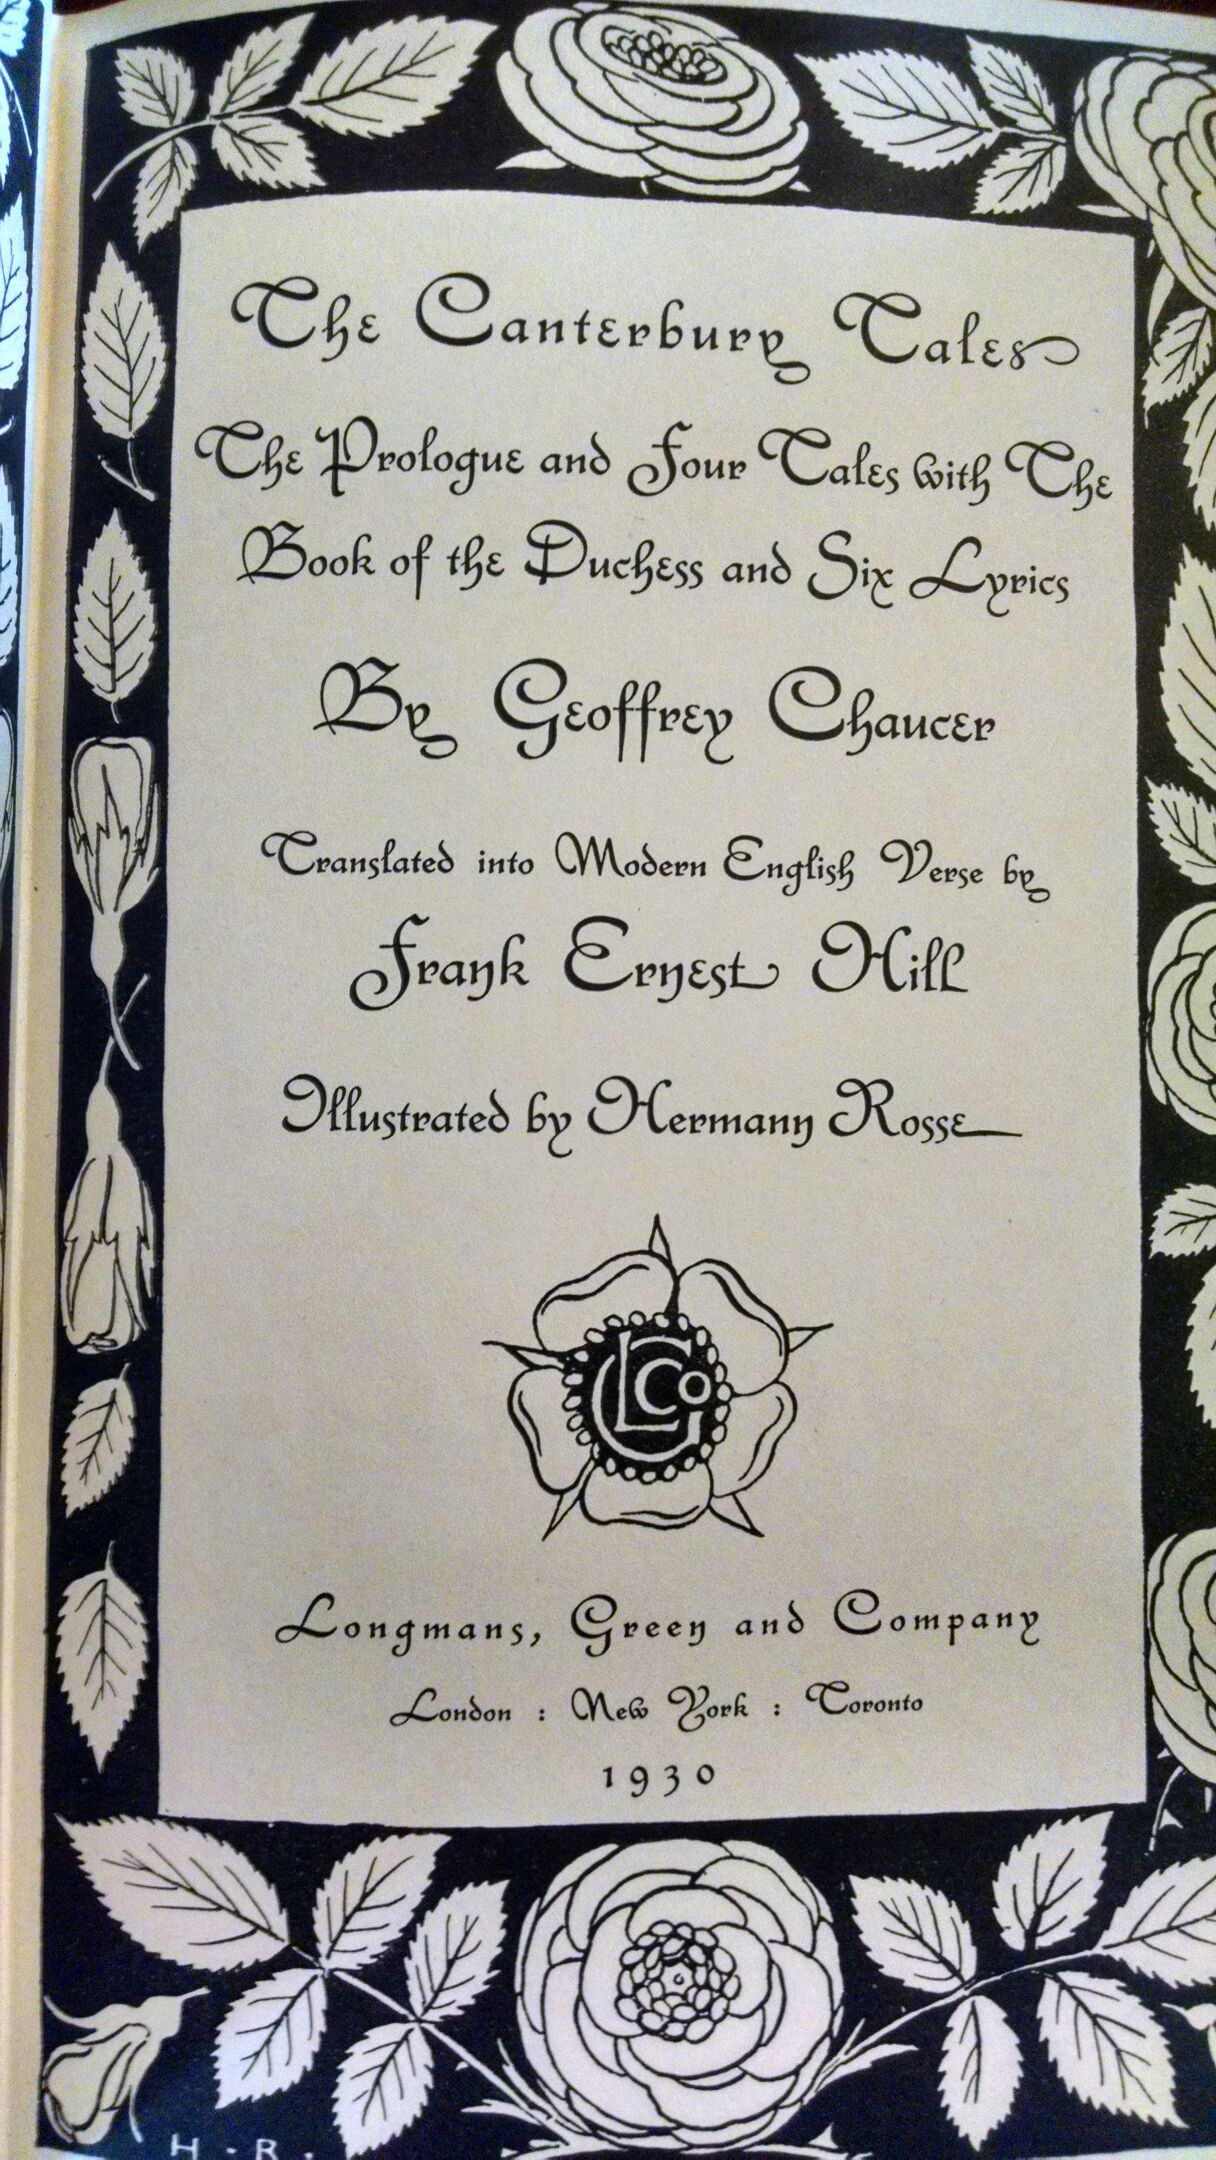 The Canterbury Tales
The Prologue and Four Tales with The
Book of the Duchess and Six Lyrics
By Geoffrey Chaucer
Translated into Modern English Verse by
Frank Ernest Hill
Illustrated by Hermann Rosse
LGCo
Longmans, Green and Company
London : New York : Toronto
1930
H. R.